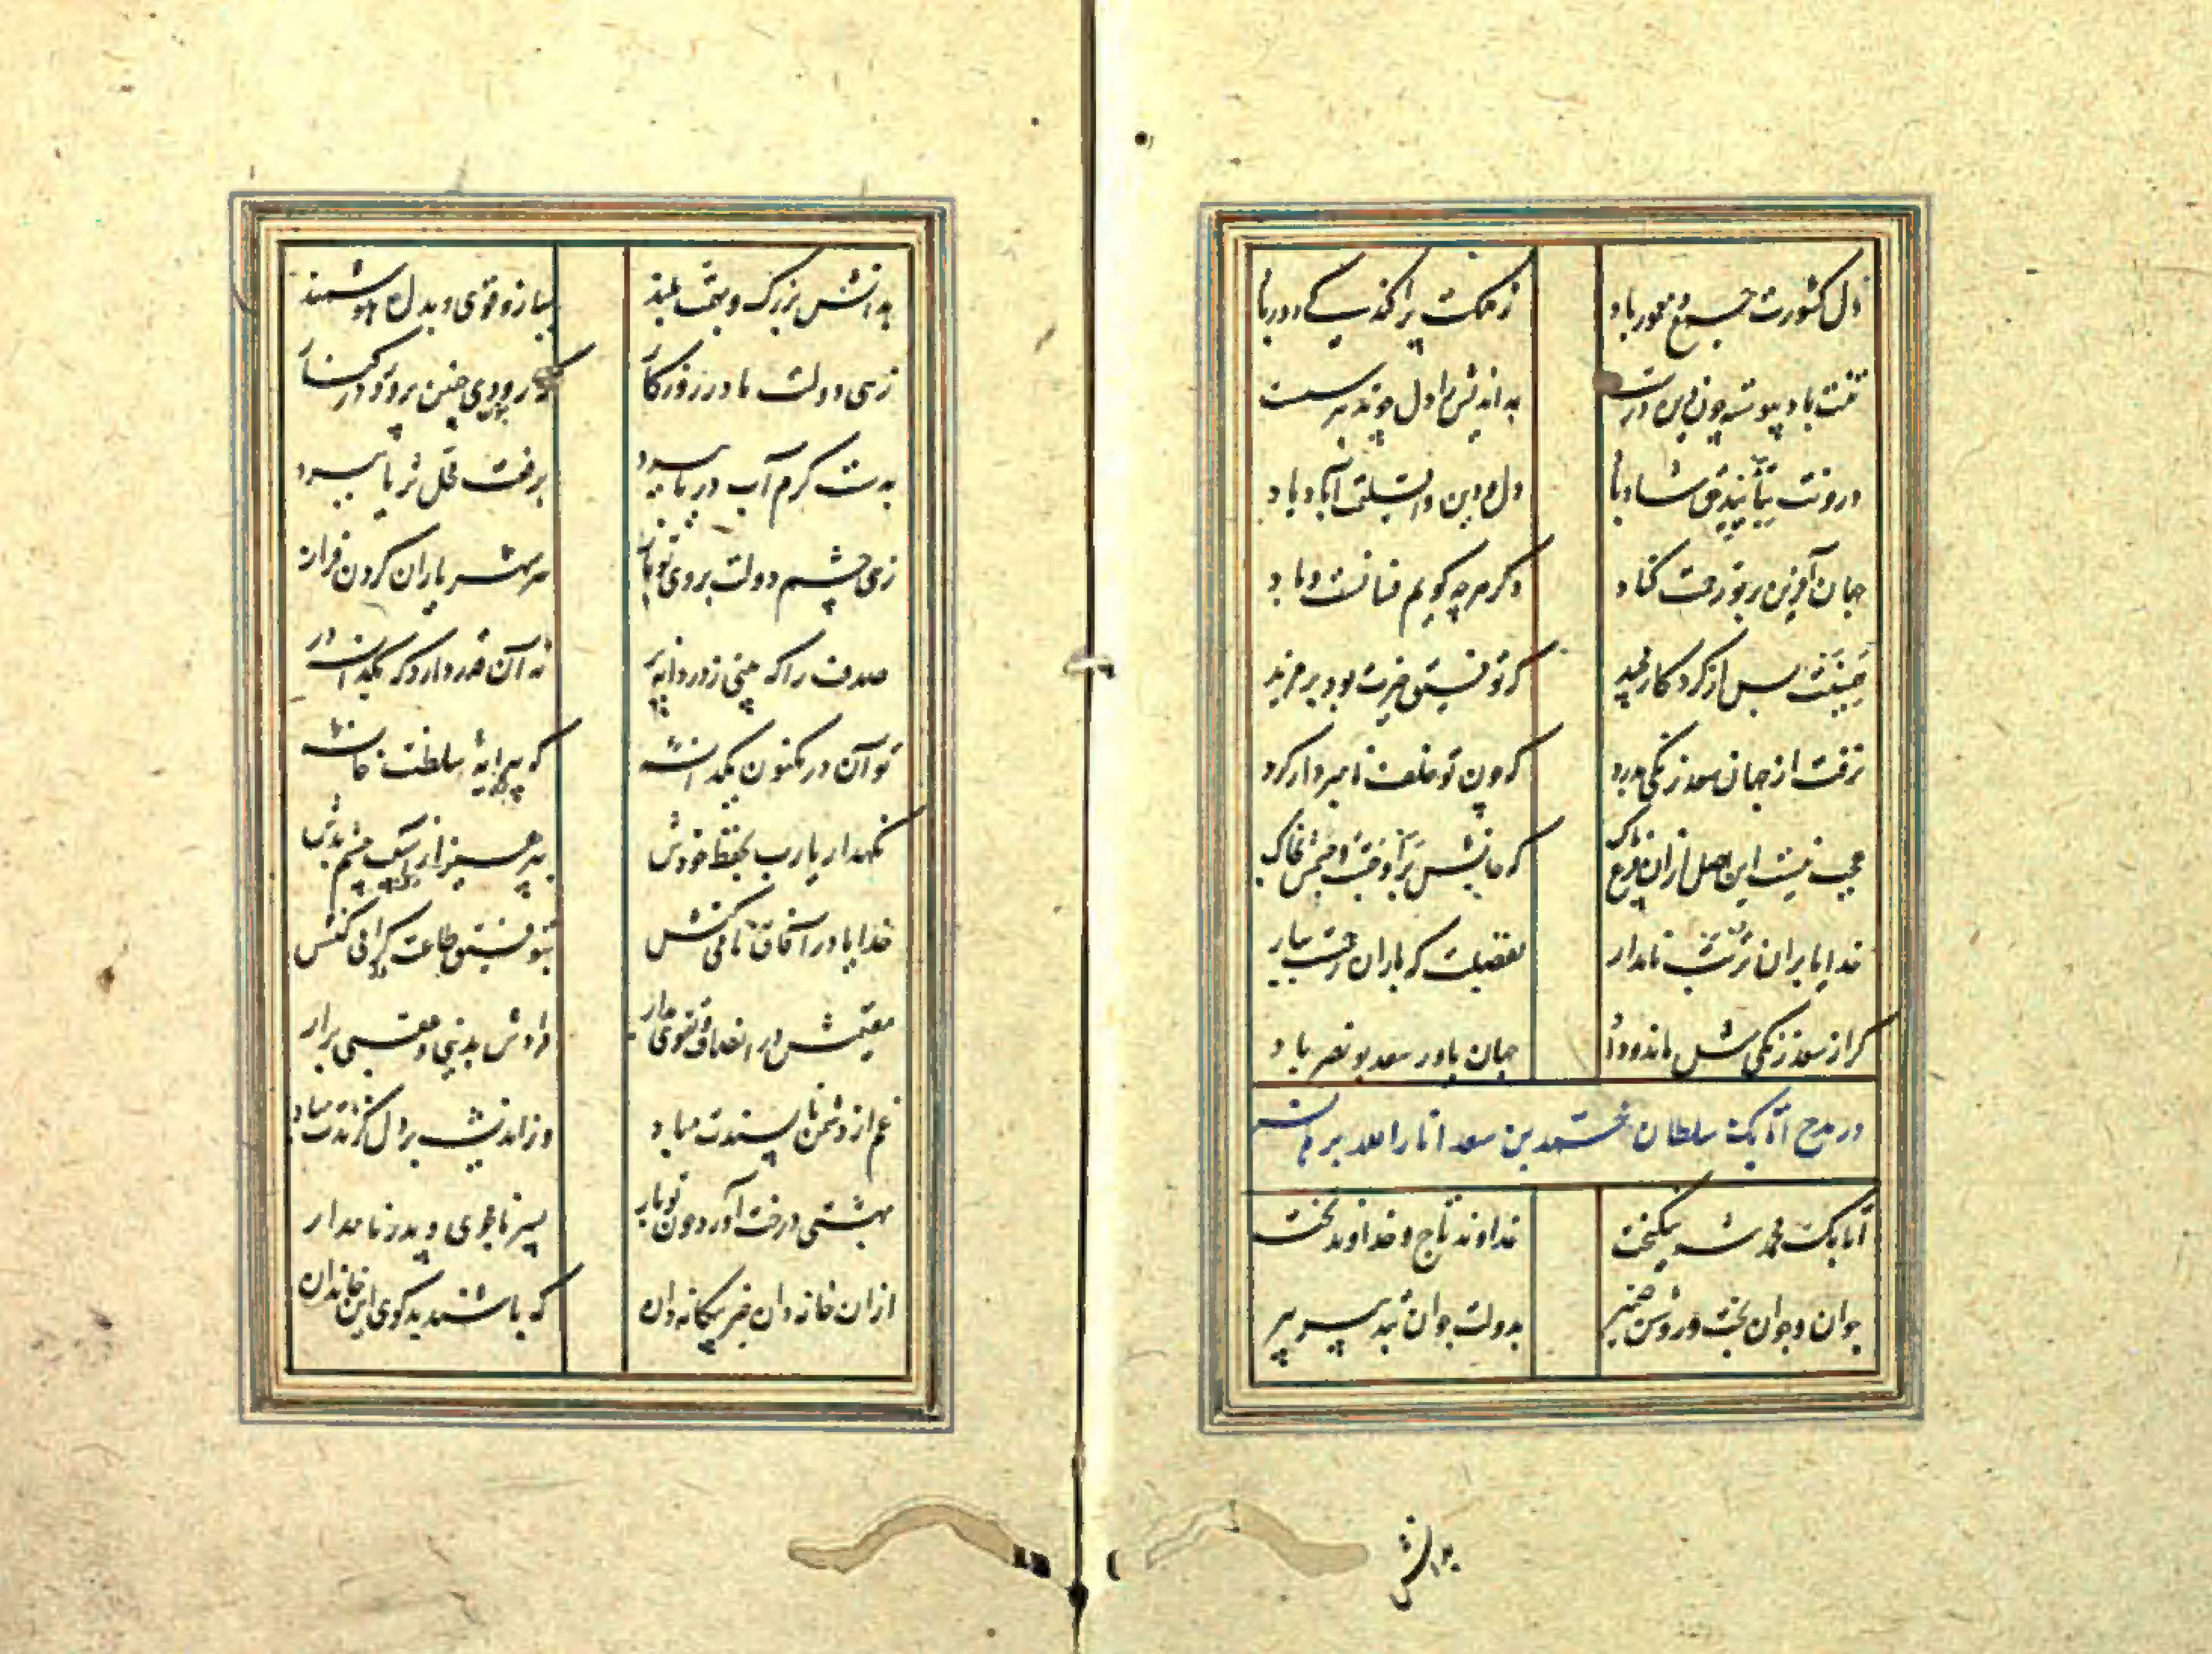 دل کشورت جمع و معمور باد ز ملکت پراکندگی دور باد
تنت باد پیوسته چون دین درست بداندیش را دل چو تدبیر سست
درونت بتأیید حق شاد باد دل و دین و اقلیمت آباد باد
جهان آفرین بر تو رحمت کناد دگر هر چه گویم فسانست و باد
همینت بس از کردگار مجید که توفیق خیرت بود بر مزید
نرفت از جهان سعد زنگی بدرد که چون تو خلف نامبردار کرد
عجب نیست این فرع ازان اصل پاک که جانش بر اوجست و جسمش بخاک
خدایا بران تربت نامدار بفضلت که باران رحمت ببار
گر از سعد زنگی مثل ماند و یاد جهان یاور سعد بونصر باد
در مدح اتابک سلطان محمد بن سعد انار الله برهانه
اتابک محمد شه نیکبخت خداوند تاج و خداوند تخت
جوان و جوان بخت و روشن ضمیر بدولت جوان بتدبیر پیر
بدانش
بدانش بزرگ و بهمت بلند ببازو قوی و بدل هوشمند
زهی دولت مادر روزگار که رودی چنین پرورد در کنار
بدست کرم آب دریا ببرد برفعت محل ثریا ببرد
زهی چشم دولت بروی تو باز سر شهریاران گردن فراز
صدف را که بینی ز دردانه پر نه آن قدر دارد که یکدانه در
تو آن در مکنون یکدانهٔ که پیرایهٔ سلطنت خانهٔ
نگهدار یارب بحفظ خودش بپرهیز از آسیب چشم بدش
خدایا در آفاق نامی کنش بتوفیق طاعت گرامی کنش
مقیمش در انصاف و تقوی بدار مرادش بدنیی و عقبی برار
غم از دشمن ناپسندت مباد وز اندیشه بر دل گزندت مباد
بهشتی درخت آورد چون تو بار پسر نامجوی و پدر نامدار
ازان خاندان خیر بیگانه دان که باشند بدگوی این خاندان